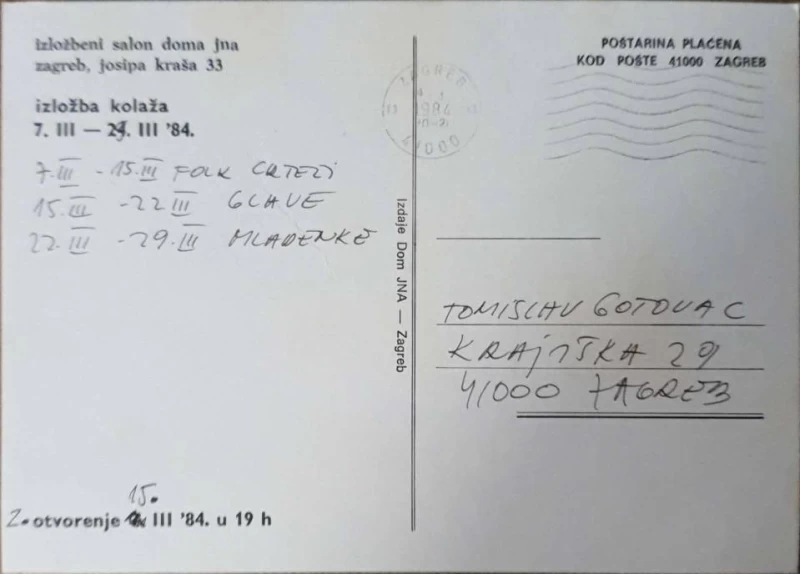 izložbeni salon doma jna
zagreb, josipa kraša 33
izložba kolaža
7. III — 29. III '84.
7. III - 15. III FOLK CRTEZI
15. III - 22 III GLAVE
22. III - 29. III MLADENKE
15.
2. otvorenje III '84. u 19 h
Izdaje Dom JNA — Zagreb
ZAGREB
1984
41000
POŠTARINA PLAĆENA
KOD POŠTE 41000 ZAGREB
TOMISLAV GOTOVAC
KRAJIŠKA 29
41000 ZAGREB